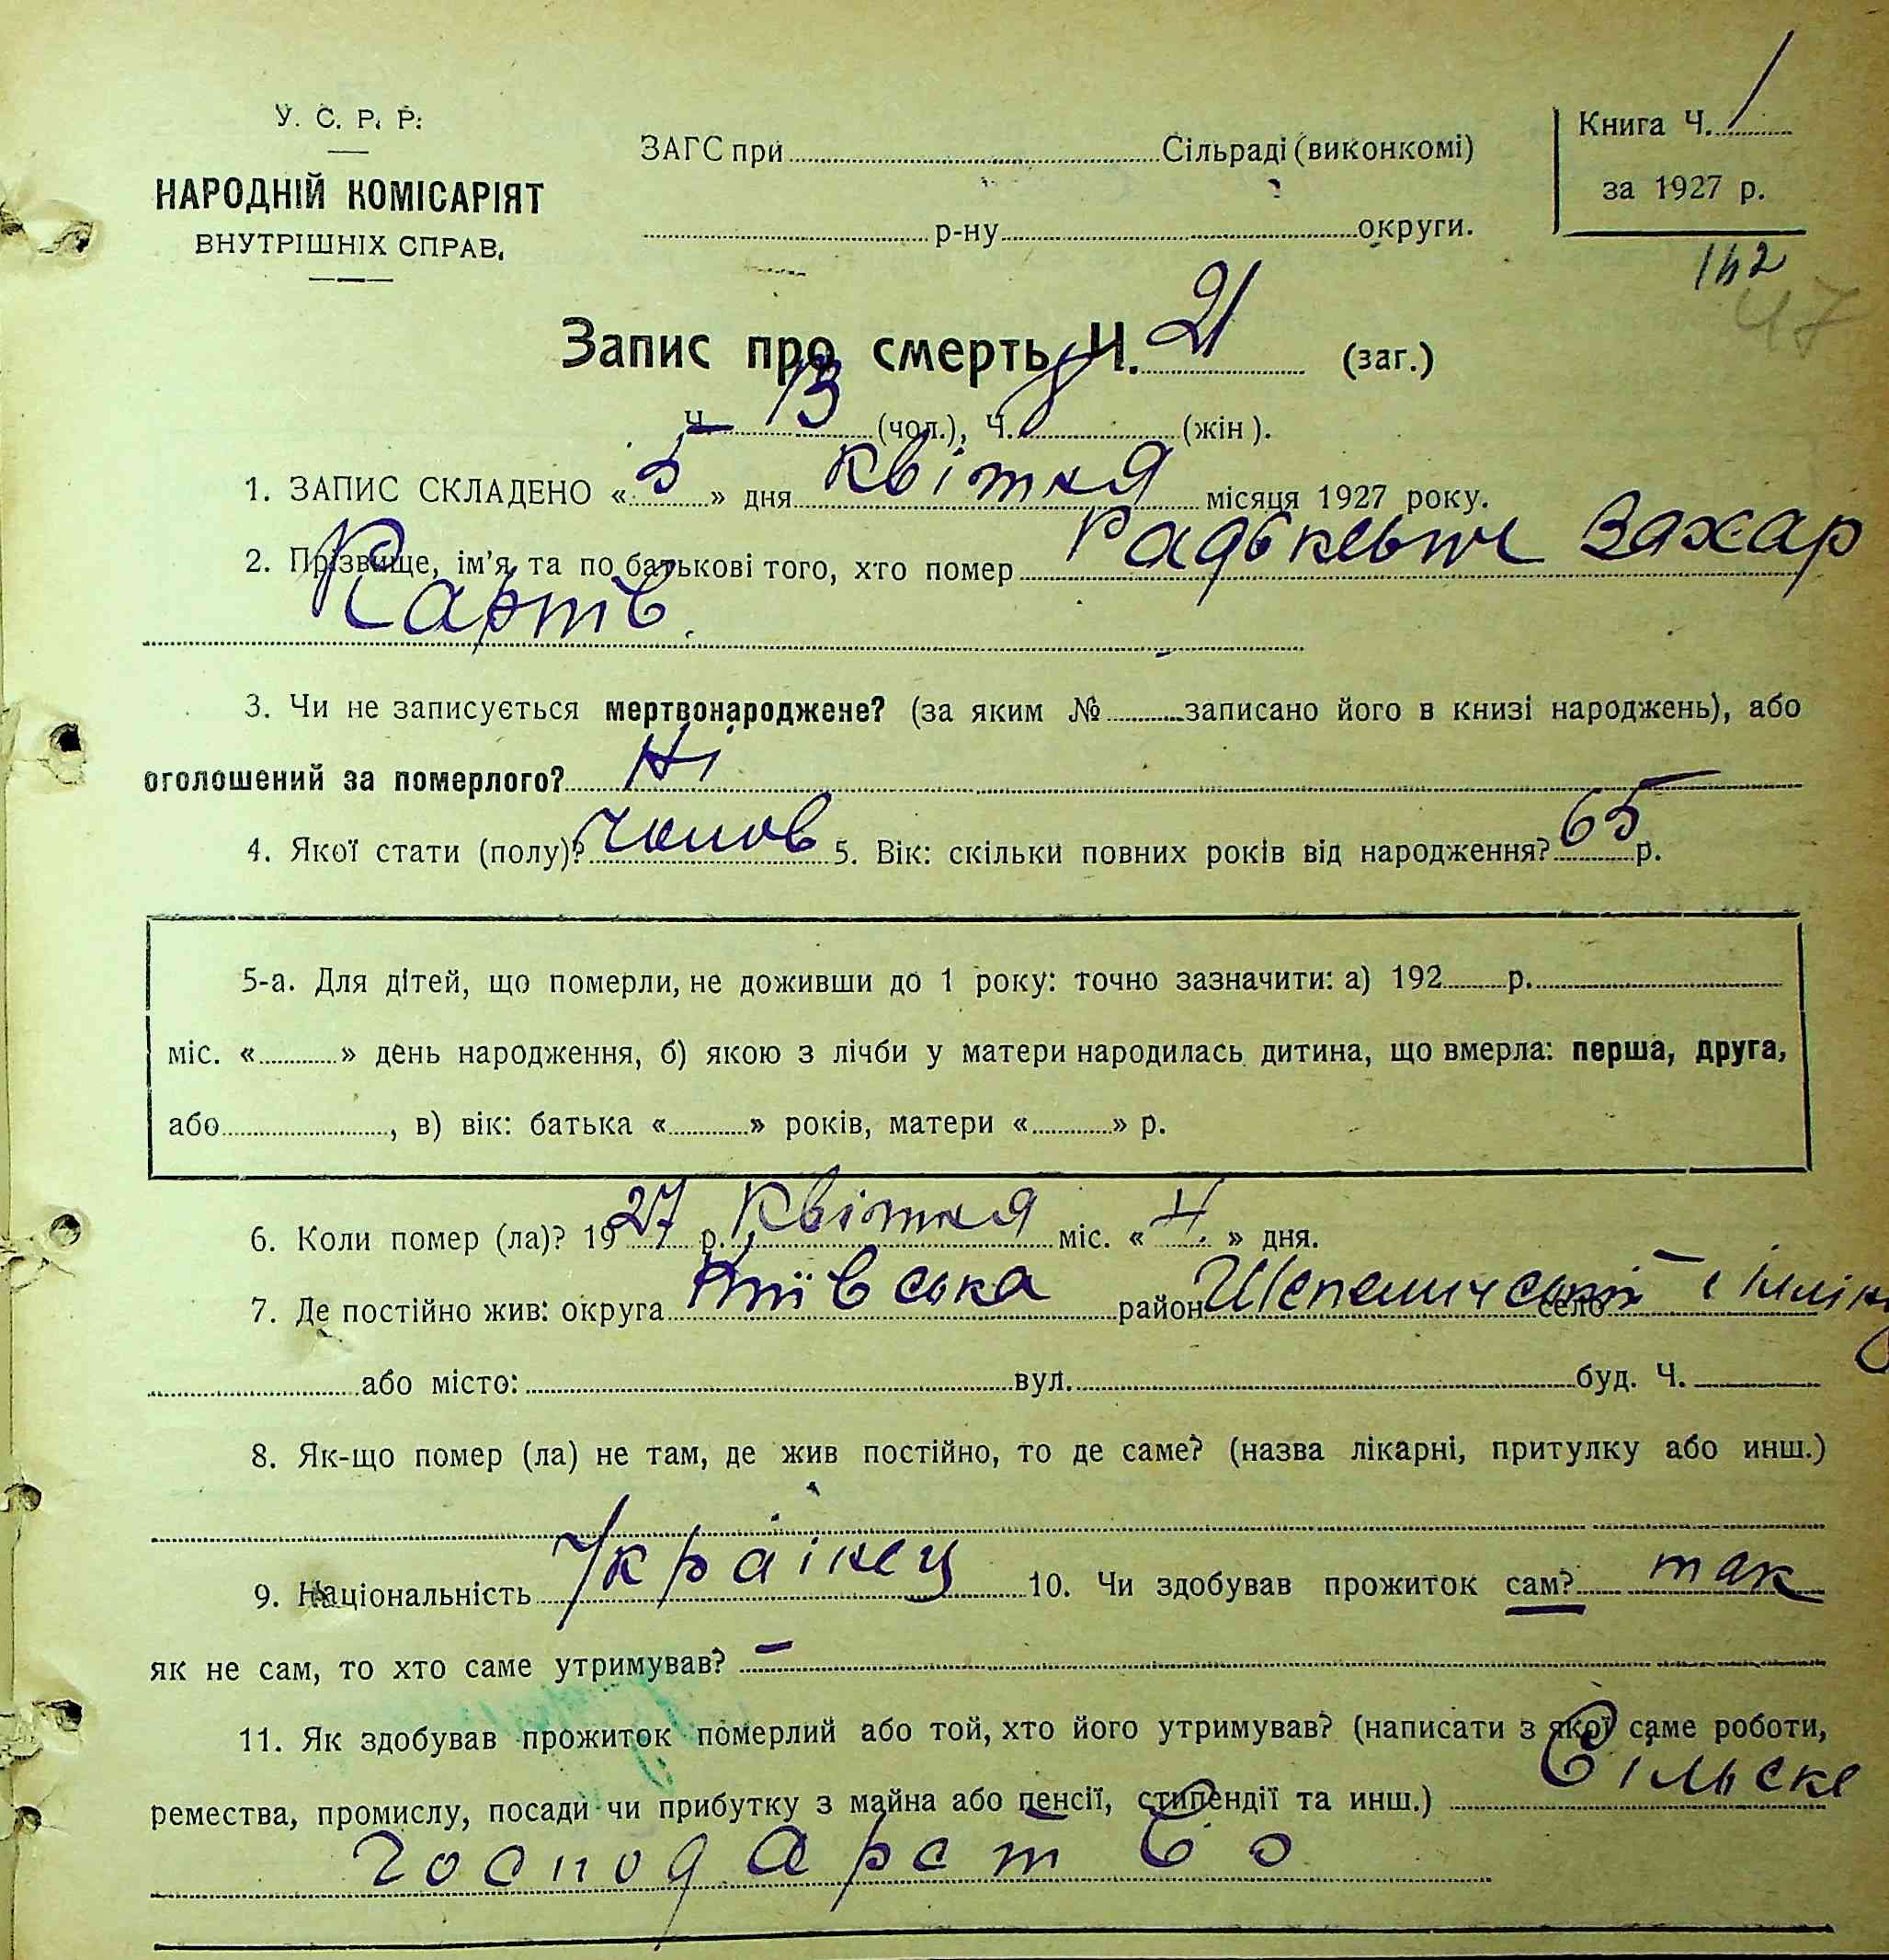 У. С. Р. Р.
НАРОДНІЙ КОМІСАРІЯТ
ВНУТРІШНІХ СПРАВ.
ЗАГС при Сільраді (виконкомі)
р-ну округи.
Книга Ч. 1
за 1927 р.
142
47
Запис про смерть Ч. 21 (заг.)
Ч. 13 (чол.), Ч. 8 (жін).
1. ЗАПИС СКЛАДЕНО «5» дня квітня місяця 1927 року.
2. Прізвище, ім'я, та по батькові того, хто помер Радькевич Захар
Карпів.
3. Чи не записується мертвонароджене? (за яким № записано його в книзі народжень), або
оголошений за померлого? Ні
4. Якої стати (полу)? чолов 5. Вік: скільки повних років від народження? 65 р.
5-а. Для дітей, що померли, не доживши до 1 року: точно зазначити: а) 192 р.
міс. « » день народження, б) якою з лічби у матери народилась дитина, що вмерла: перша, друга,
або , в) вік: батька « » років, матери « » р.
6. Коли помер (ла)? 1927 р. квітня міс. « 4 » дня.
7. Де постійно жив: округа Київська район Шепелицький село
або місто: вул. буд. Ч.
8. Як-що помер (ла) не там, де жив постійно, то де саме? (назва лікарні, притулку або инш.)
9. Національність Українец 10. Чи здобував прожиток сам? так
як не сам, то хто саме утримував? –
11. Як здобував прожиток померлий або той, хто його утримував? (написати з якої саме роботи,
ремества, промислу, посади чи прибутку з майна або пенсії, стипендії та инш.) Сільске
господарство